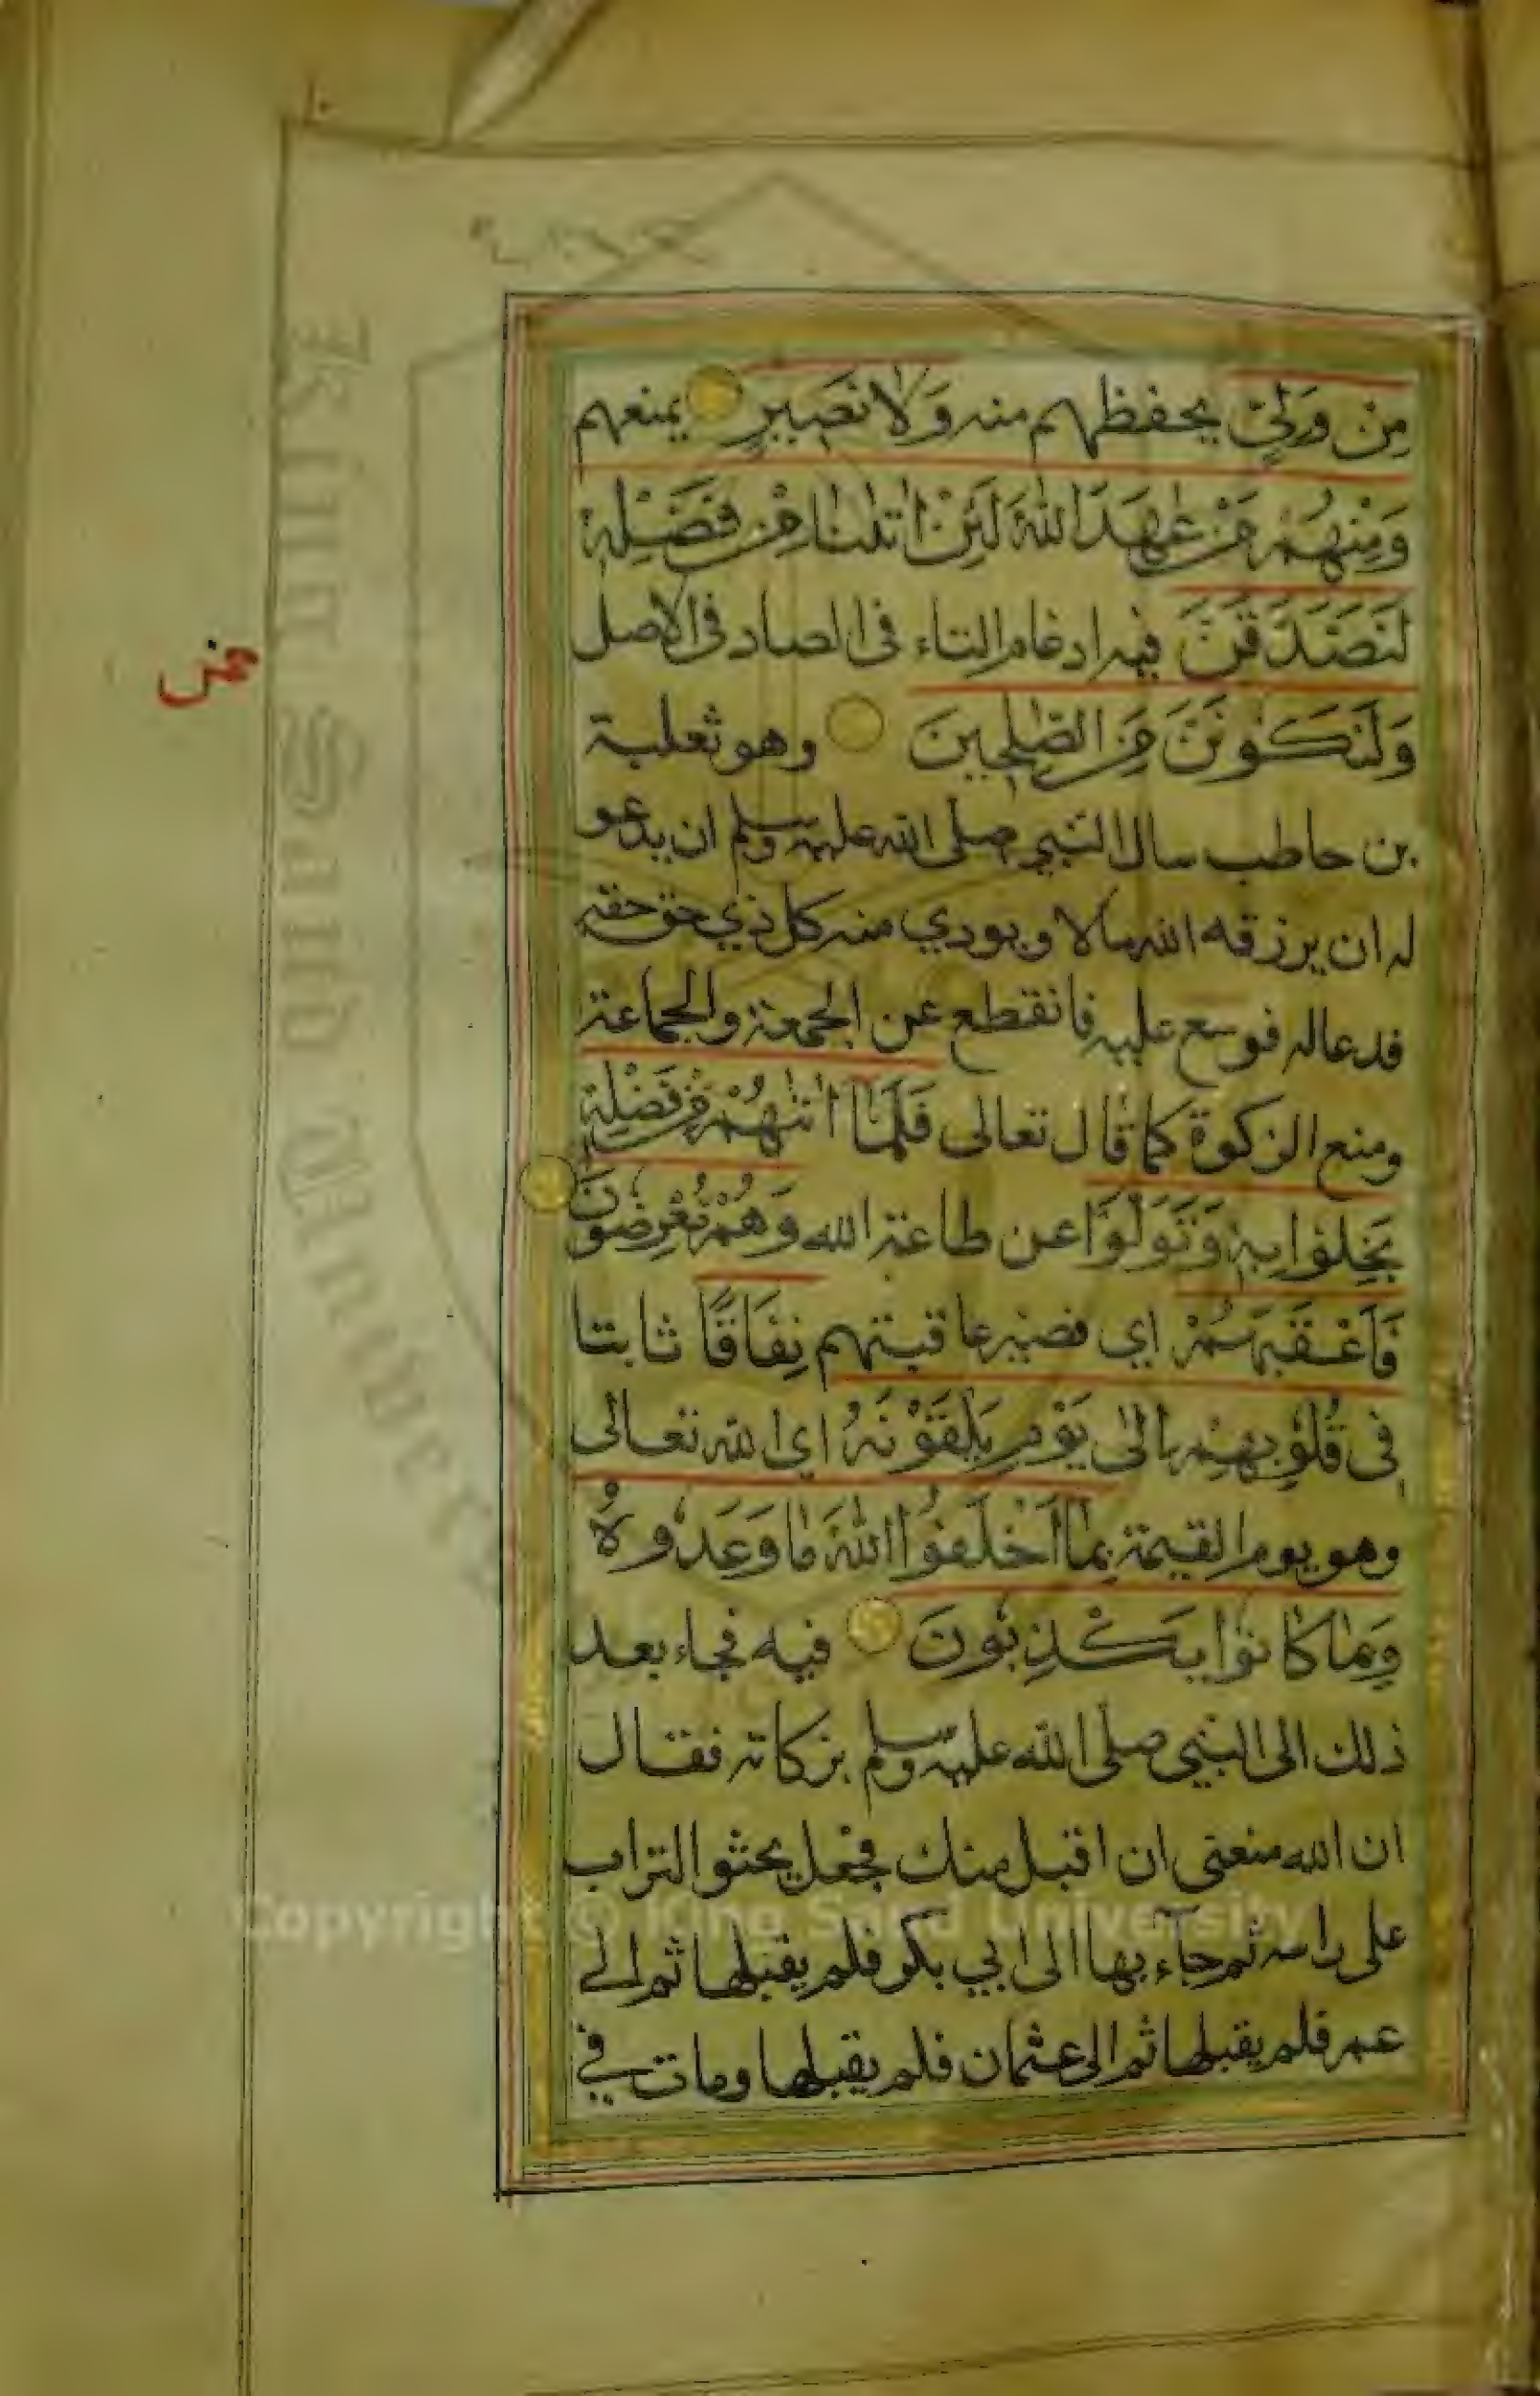 ١٠
مِنْ وَلِيٍّ يحفظهم منه وَلَا نَصِيرٍ يمنعهم
وَمِنْهُمْ مَنْ عٰهَدَ اللّٰهَ لَئِنْ اٰتٰنَا مِنْ فَضْلِهٖ
لَنَصَّدَّقَنَّ فيه ادغام التاء فى الصاد فى الاصل
وَلَنَكُوْنَنَّ مِنَ الصّٰلِحِينَ وهو ثعلبة
بن حاطب سال النبي صلى الله عليه وسلم ان يدعو
له ان يرزقه الله مالا ويودي منه كل ذي حق حقه
فدعا له فوسع عليه فانقطع عن الجمعة والجماعة
ومنع الزكوة كما قال تعالى فَلَمَّآ اٰتٰهُمْ مِنْ فَضْلِهٖ
بَخِلُوْا بِهٖ وَتَوَلَّوْا عن طاعة الله وَهُمْ مُعْرِضُوْنَ
فَاَعْقَبَهُمْ اي فصير عاقبتهم نِفَاقًا ثابتا
فِى قُلُوْبِهِمْ اِلٰى يَوْمِ يَلْقَوْنَهُ اي الله تعالى
وهو يوم القيمة بِمَآ اَخْلَفُوا اللّٰهَ مَا وَعَدُوهُ
وَبِمَا كَانُوْا يَكْذِبُوْنَ فيه فجاء بعد
ذلك الى النبي صلى الله عليه وسلم بزكاته فقال
ان الله منعنى ان اقبل منك فجعل يحثو التراب
على راسه ثم جآء بها الى ابي بكر فلم يقبلها ثم الى
عمر فلم يقبلها ثم الى عثمان فلم يقبلها ومات في
King Saud University
Copyright © King Saud University